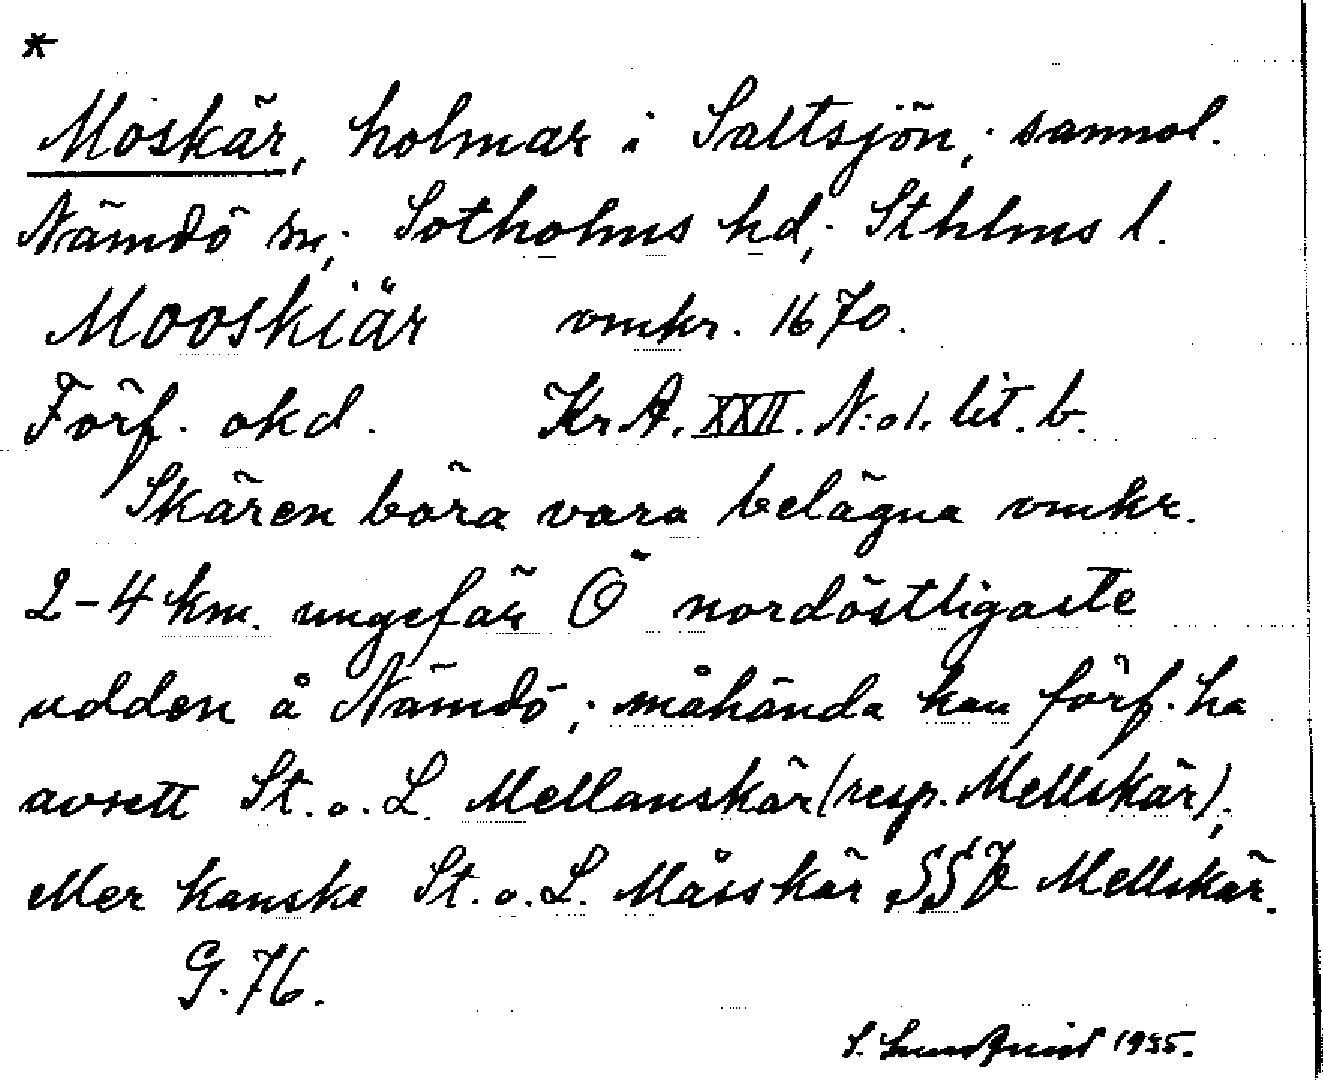 *
Moskär, holmar i Saltsjön; sannol.
Nämdö sn; Sotholms hd; Sthlms l.
Mooskiär omkr. 1670.
Förf. okd. Kr A. XXII. N:o 1. lit. b.
Skären böra vara belägna omkr.
2-4 km. ungefär Ö nordöstligaste
udden å Nämdö; måhända kan förf. ha
avsett St. o. L. Mellanskär (resp. Mellskär),
eller kanske St. o. L. Måsskär SSV Mellskär.
G. 76.
S. Sundqvist 1955.